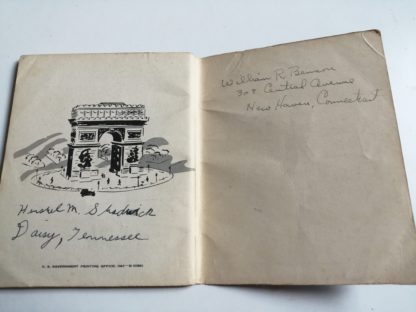 Hershel M. Shadwick
Daisy, Tennessee
U. S. GOVERNMENT PRINTING OFFICE
William R. Benson
308 Central Avenue
New Haven, Connecticut